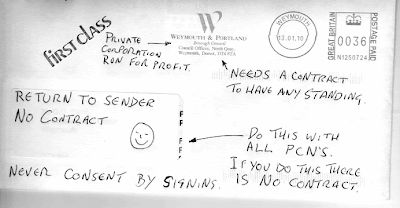 first class
PRIVATE
CORPORATION
RUN FOR PROFIT.
W
WEYMOUTH & PORTLAND
Borough Council
Council Offices, North Quay,
Weymouth, Dorset, DT4 8TA
WEYMOUTH
13.01.10
GREAT BRITAIN
0036
N1250724
POSTAGE PAID
NEEDS A CONTRACT
TO HAVE ANY STANDING.
RETURN TO SENDER
NO CONTRACT
F
F
F
DO THIS WITH
ALL PCN'S.
IF YOU DO THIS THERE
IS NO CONTRACT.
NEVER CONSENT BY SIGNING.